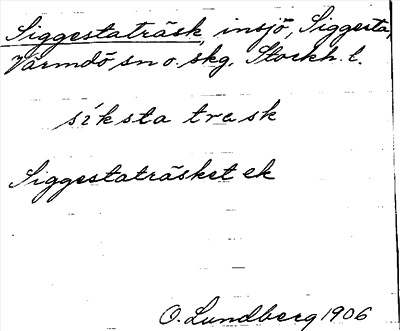 Siggestaträsk, insjö, Siggesta,
Värmdö sn o. skg. Stockh. l.
síksta trask
Siggestaträsket ek
O. Lundberg 1906